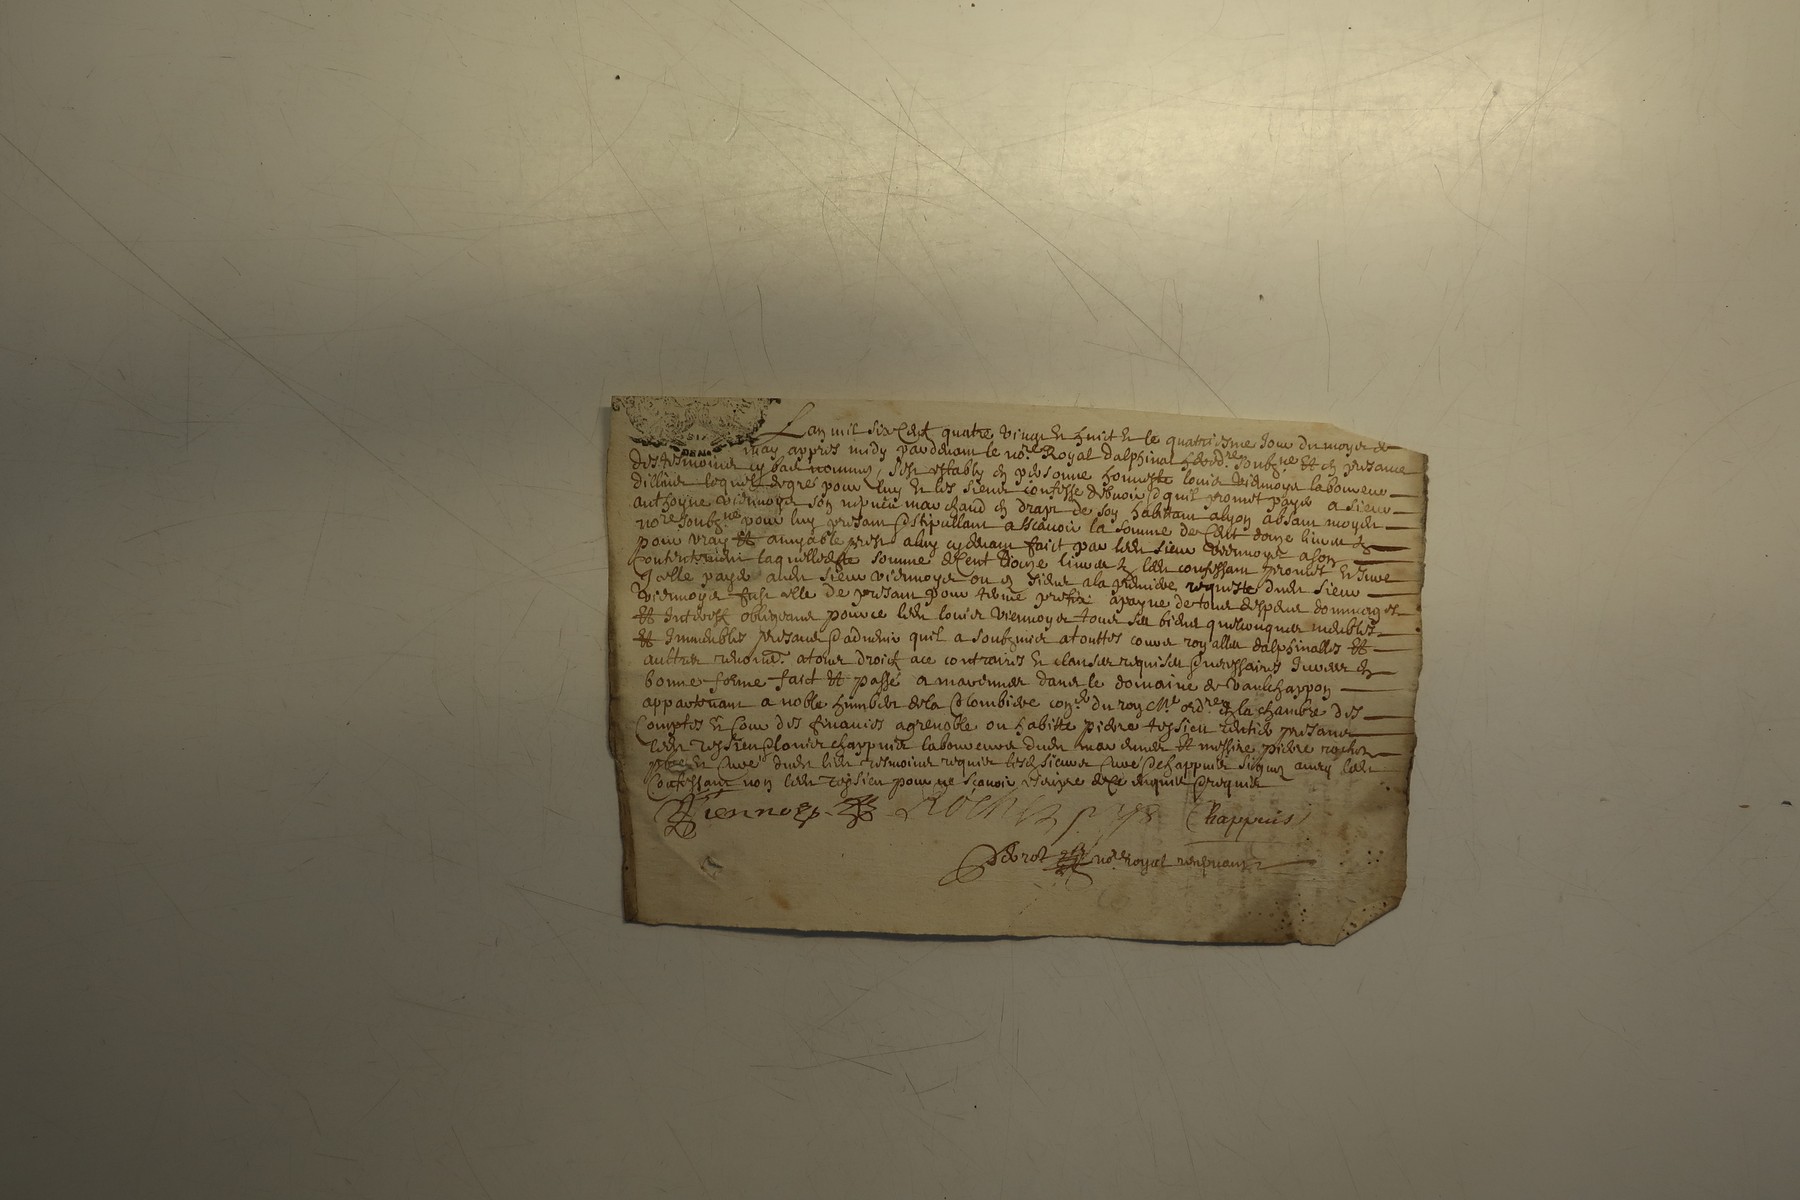 Lan mil six Cent quatre vingt Et huict Et le quatriesme Jour du moys de
may appres midy par devant le no.re Royal dalphinal heredre soubz.ne Et en presance
des tesmoins cy bas nommes, sest estably en personne honneste louis viennoys laboureur
dillins lequel de gre pour luy Et les siens confesse debvoir et quil promet payer a sieur
anthoyne viennoys son nepveu marchand en drapt de soy habittant a lyon absant moyen
no.re soubz.ne pour luy presant et stipullant a Scavoir la somme de Cent douze livres
pour vray Et amyable prest a luy cy devant faict par ledt sieur viennoys a son
Contentement laquelle dte somme de Cent douze livres ledt confessant promet Et Jure
Icelle payer audt sieur viennoys ou es siens a la premiere requiste dudt sieur
viennoys fust elle de presant pour terme prefix a payne de tous despens dommages
Et Interest obligeant pour ce ledt louis viennoys tous ses biens quelconques meubles
Et Immeubles presans et advenir quil a soubzmis a touttes cours royalles dalphinalles Et
aultres renon.t a tous droict a ce contraires Et clauses requises et necessaires Jurees en
bonne forme faict Et passé a marennes dans le domaine de vaulchappon
appartenant a noble humbert de la Colombiere con.er du roy M.e ord.re en la chambre des
Comptes Et Cour des finances a grenoble ou habitte pierre tessieu rentier presans
ledt tessieu et louis chappuis laboureur dudt marennes Et messire pierre rochez
pbre Et Curé dudt lieu tesmoins requis lesd sieurs Curé et chappuis signes avec ledt
Confessant non ledt tessieu pour ne scavoir escripre de ce enquis et requis
Viennoys Rochez p. Chappuis
no.re Royal recepvant